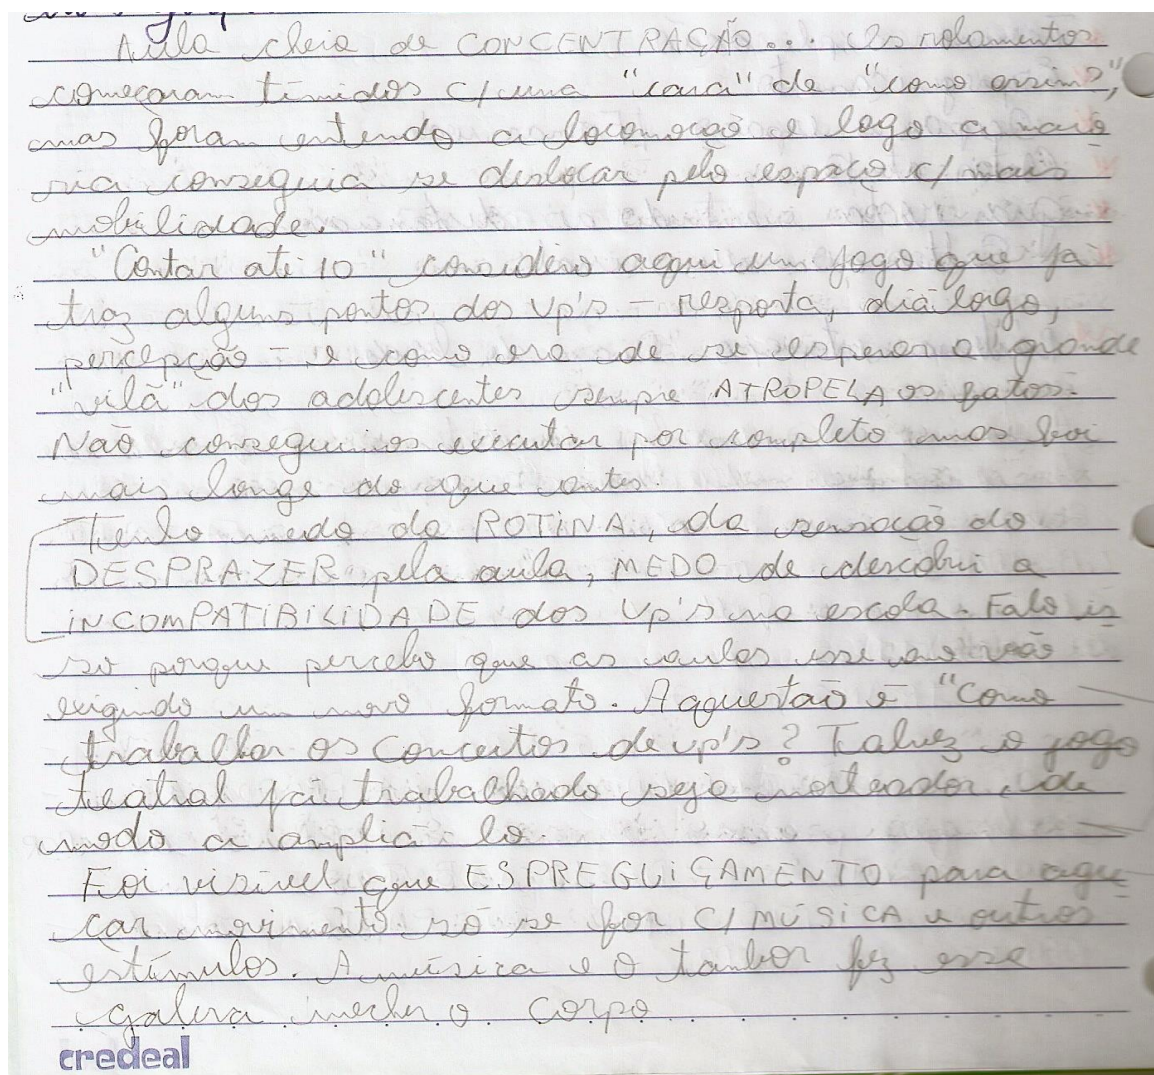 Aula cheia de CONCENTRAÇÃO... Os rolamentos
começaram tímidos c/ uma "cara" de "como assim?",
mas foram entendo a locomoção e logo a maio
ria conseguia se deslocar pelo espaço c/ mais
mobilidade.
"Contar até 10" considero aqui um jogo que já
traz alguns pontos dos Vp's – resposta, diálogo,
percepção – e como era de se esperar a grande
"vilã" dos adolescentes sempre ATROPELA os fatos.
Não conseguimos executar por completo mas foi
mais longe do que antes.
Tenho medo da ROTINA, da sensação do
DESPRAZER pela aula, MEDO de descobrir a
INCOMPATIBILIDADE dos Vp's na escola. Falo is
so porque percebo que as aulas esse ano vão
exigindo um novo formato. A questão é "Como
trabalhar os conceitos de vp's? Talvez o jogo
teatral já trabalhado seja norteador, de
modo a ampliá-lo.
Foi visível que ESPREGUIÇAMENTO para aque
çar movimento só se for c/ MÚSICA e outros
estímulos. A música e o tambor fez essa
galera mecher o corpo
credeal